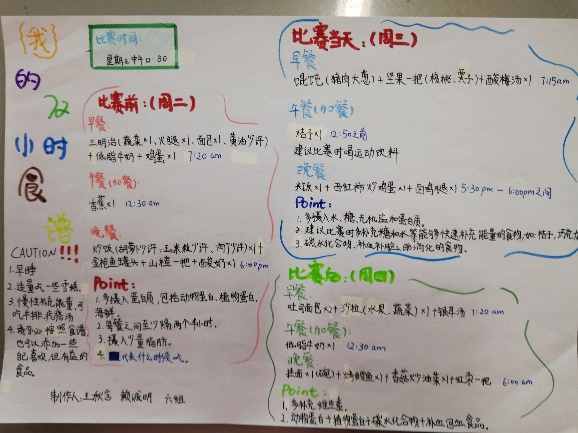 我的72小时食谱
比赛时间:
星期三中午12:50
比赛前:(周二)
早餐:
三明治(蔬菜×1、火腿×1、面包×1、黄油少许)
+低脂牛奶+鸡蛋×1 7:20 am
午餐(加餐)
香蕉×1 12:30 am
晚餐:
炒饭(胡萝卜少许、玉米粒少许、肉丁少许)×1+
金枪鱼罐头+山楂一把+酸奶×1 6:00pm
Point:
1.多摄入蛋白质,包括动物蛋白、植物蛋白、
海鲜.
2.每餐之间至少隔两个小时.
3.摄入少量脂肪.
4.
CAUTION!!!
1.早睡
2.适量吃一些零食
3.慢性补充能量,可
吃平排或
也可以添加一些
自己喜欢,但有益的
食品
制作人:王秋含 赖淑明 六组
比赛当天:(周三)
早餐
馄饨(猪肉大葱)+坚果一把(核桃、栗子)+酸梅汤×1 7:15am
午餐(加餐)
桔子×1 12:50之前
建议比赛时喝运动饮料
晚餐
米饭×1+西红柿炒鸡蛋×1+卤鸡腿×1 5:30 pm-6:00pm之间
Point:
1.多摄入水、糖、无机盐和蛋白质.
2.建议比赛时多补充糖和水等能够快速补充能量的食物,如:桔子、巧克力
3.碳水化合物、补血补
比赛后:(周四)
早餐
吐司面包×2+沙拉(水果、蔬菜)×1+银耳汤 7:20 am
午餐(加餐):
低脂牛奶×1 12:30 am
晚餐
挂面×1(碗)+烤鳕鱼×1+香菇炒油菜×1+红枣一把 6:00 am
Point:
1.多补充维生素.
2.动物蛋白+植物蛋白+碳水化合物+补血食品.